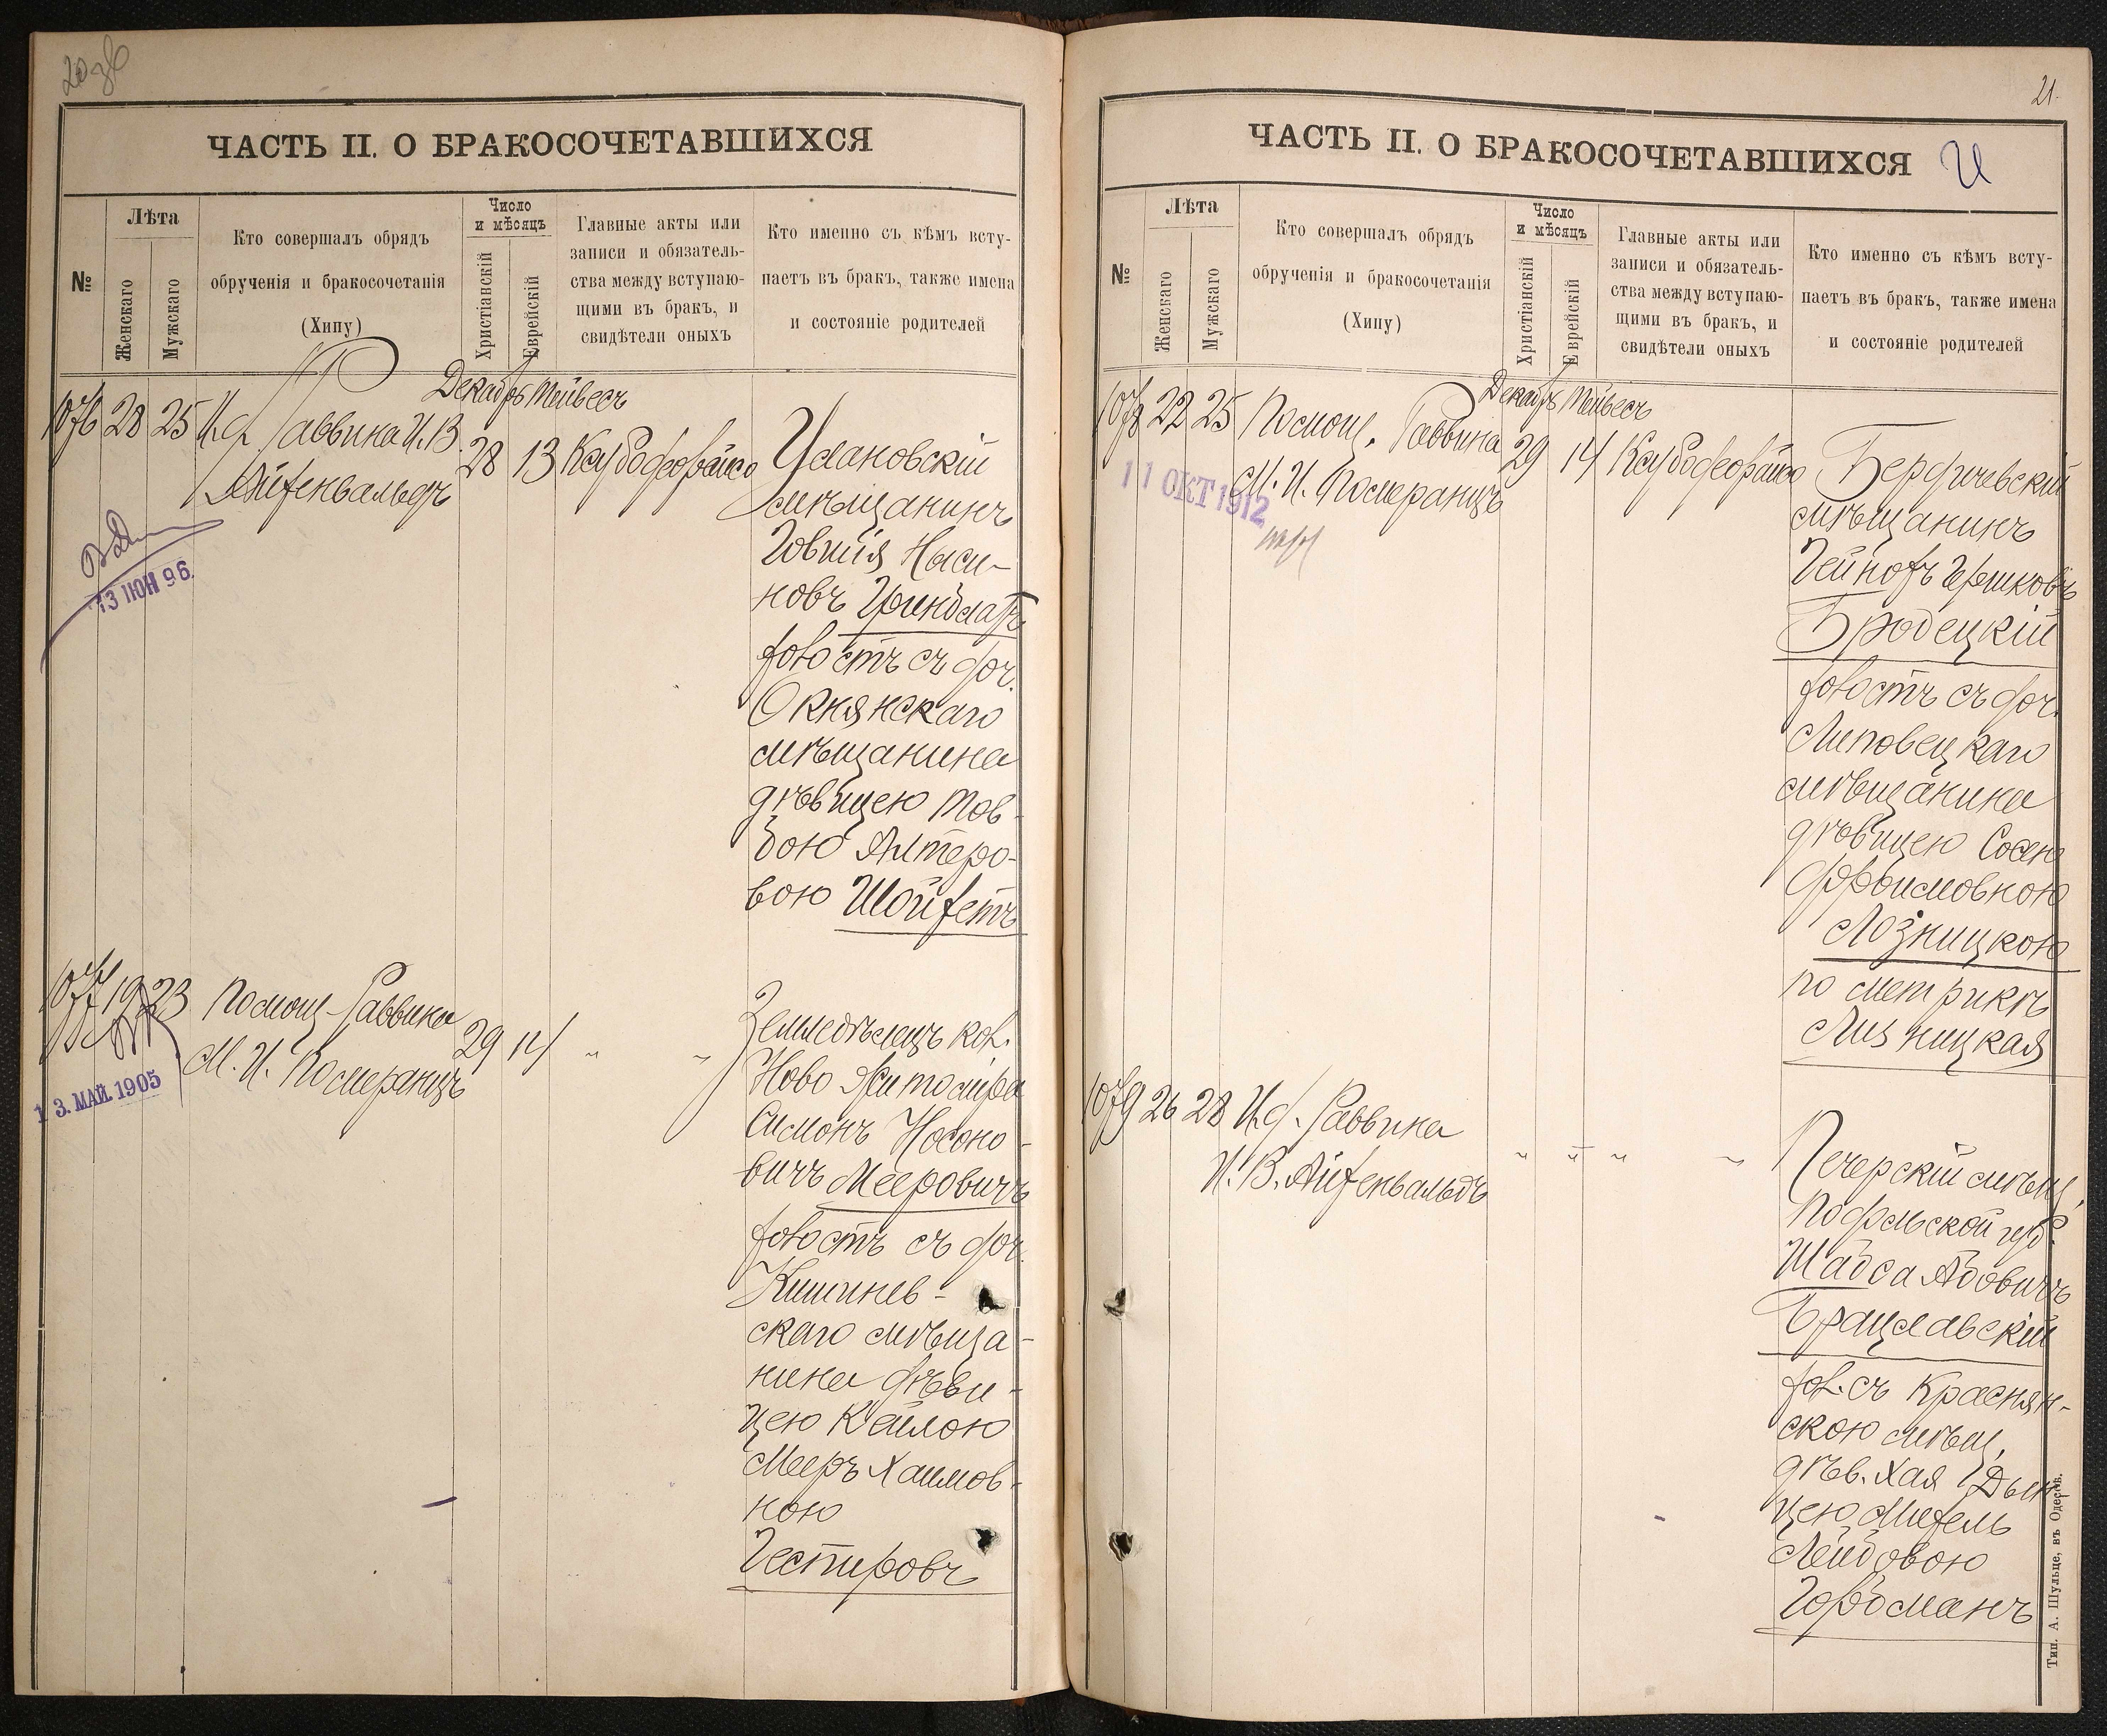 20 об
ЧАСТЬ II. О БРАКОСОЧЕТАВШИХСЯ
№
Лѣта
Женскаго
Мужскаго
Кто совершалъ обрядъ
обрученія и бракосочетанія
(Хипу)
Число
и мѣсяцъ
Христіанскій
Еврейскій
Главные акты или
записи и обязатель-
ства между вступаю-
щими въ бракъ, и
свидѣтели оныхъ
Кто именно съ кѣмъ всту-
паетъ въ бракъ, также имена
и состояніе родителей
Декабрь Тейвесъ
1076 28 25 И.д. Раввина И.В.
Айзенвальдъ
28 13
Улановскій
мѣщанинъ
Товшія Наси-
новъ Гринблатъ
холостъ съ доч.
Окнянскаго
мѣщанина
дѣвицею Тов-
бою Алтеро-
вою Шойхетъ
13 ІЮН 96.
1077 19 23 Помощ. Раввина
М. И. Померанцъ
29 14 " "
Земледѣлецъ кол.
Ново Житомира
Симонъ Носоно-
вичъ Мееровичъ
холостъ съ доч.
Кишинев-
скаго мѣща-
нина дѣви-
цею Кейлою
Мееръ Хаимов-
ною
Гестировъ
13. МАЙ 1905
21.
ЧАСТЬ II. О БРАКОСОЧЕТАВШИХСЯ
№
Лѣта
Женскаго
Мужскаго
Кто совершалъ обрядъ
обрученія и бракосочетанія
(Хипу)
Число
и мѣсяцъ
Христіанскій
Еврейскій
Главные акты или
записи и обязатель-
ства между вступаю-
щими въ бракъ, и
свидѣтели оныхъ
Кто именно съ кѣмъ всту-
паетъ въ бракъ, также имена
и состояніе родителей
Декабрь Тейвесъ
1078 22 25 Помощ. Раввина
М. И. Померанцъ
29 14
Бердичевскій
мѣщанинъ
Гершковъ
Бродецкій
холостъ съ доч.
Липовецкаго
мѣщанина
дѣвицею Сосею
Фроимовною
Лозницкою
по метрикѣ
Лизницкая
11 ОКТ 1912
1079 26 28 И.д. Раввина
И. В. Айзенвальдъ
" " " "
Печерскій мѣщ.
Подольской губ.
Шабса Абовичъ
Брацлавскій
хол. съ Краснян-
скою мѣщ.
дѣв. Хая Дын-
цею
Лейбовою
Гойхманъ
Тип. А. Шульце, въ Одессѣ.